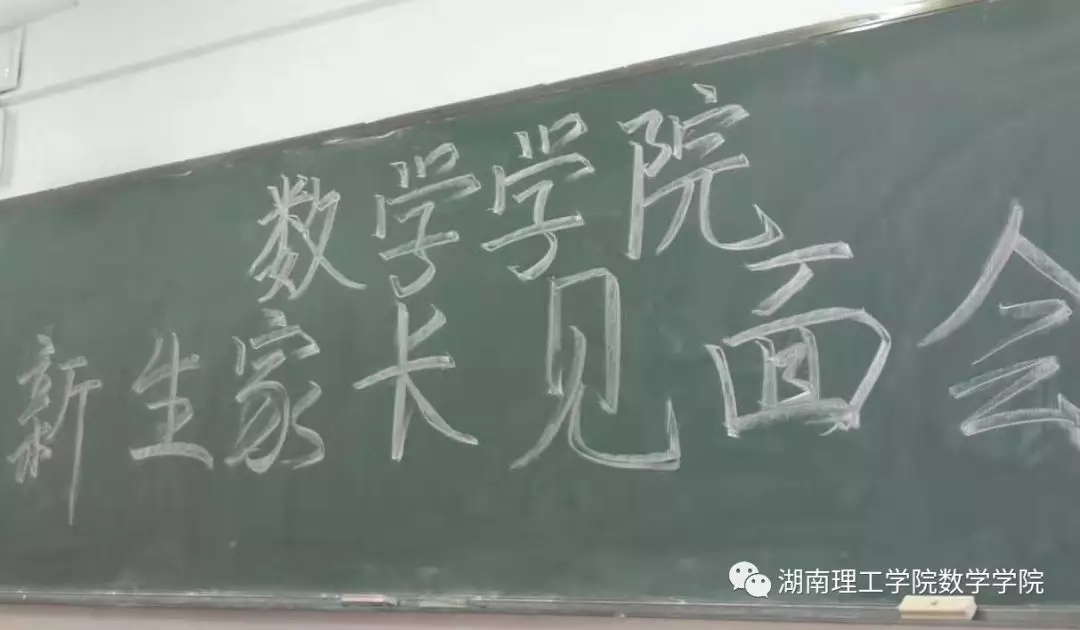 数学学院
新生家长见面会
湖南理工学院数学学院